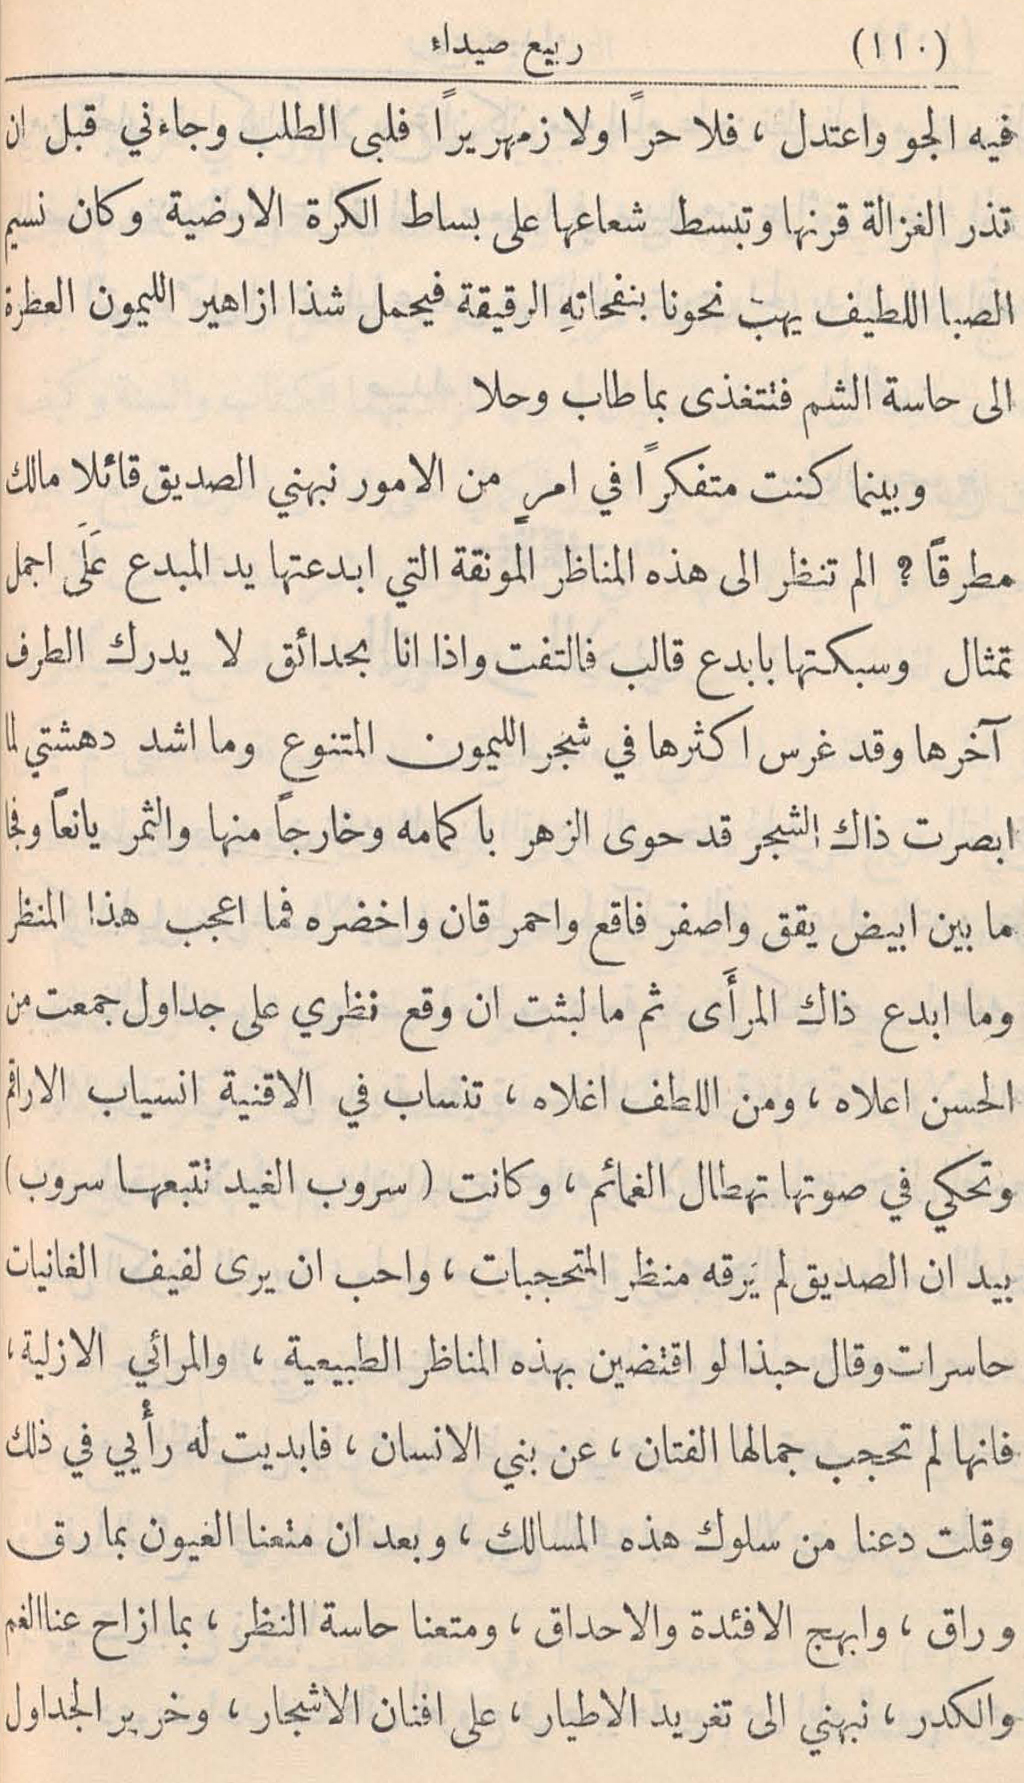 (١١٠) ربيع صيداء
فيه الجو واعتدل ، فلا حراً ولا زمهريراً فلبى الطلب وجاءني قبل ان
تذر الغزالة قرنها وتبسط شعاعها على بساط الكرة الارضية وكان نسيم
الصبا اللطيف يهبّ نحونا بنفحاتهِ الرقيقة فيحمل شذا ازاهير الليمون العطرة
الى حاسة الشم فتتغذى بما طاب وحلا
وبينما كنت متفكراً في امرٍ من الامور نبهني الصديق قائلا مالك
مطرقاً ؟ الم تنظر الى هذه المناظر المونقة التي ابدعتها يد المبدع عَلَى اجمل
تمثال وسبكتها بابدع قالب فالتفت واذا انا بحدائق لا يدرك الطرف
آخرها وقد غرس اكثرها في شجر الليمون المتنوع وما اشد دهشتي لما
ابصرت ذاك الشجر قد حوى الزهر باكمامه وخارجاً منها والثمر يانعاً وفجا
ما بين ابيض يقق واصفر فاقع واحمر قان واخضره فما اعجب هذا المنظر
وما ابدع ذاك المرأَى ثم ما لبثت ان وقع نظري على جداول جمعت من
الحسن اعلاه ، ومن اللطف اغلاه ، تنساب في الاقنية انسياب الاراقم
وتحكي في صوتها تهطال الغمائم ، وكانت ( سروب الغيد تتبعها سروب )
بيد ان الصديق لم يَرقه منظر المتحجبات ، واحب ان يرى لفيف الغانيات
حاسرات وقال حبذا لو اقتضين بهذه المناظر الطبيعية ، والمرائي الازلية ،
فانها لم تحجب جمالها الفتان ، عن بني الانسان ، فابديت له رأْيي في ذلك
وقلت دعنا من سلوك هذه المسالك ، وبعد ان متعنا العيون بما رق
وراق ، وابهج الافئدة والاحداق ، ومتعنا حاسة النظر ، بما ازاح عنا الغم
والكدر ، نبهني الى تغريد الاطيار ، على افنان الاشجار ، وخرير الجداول